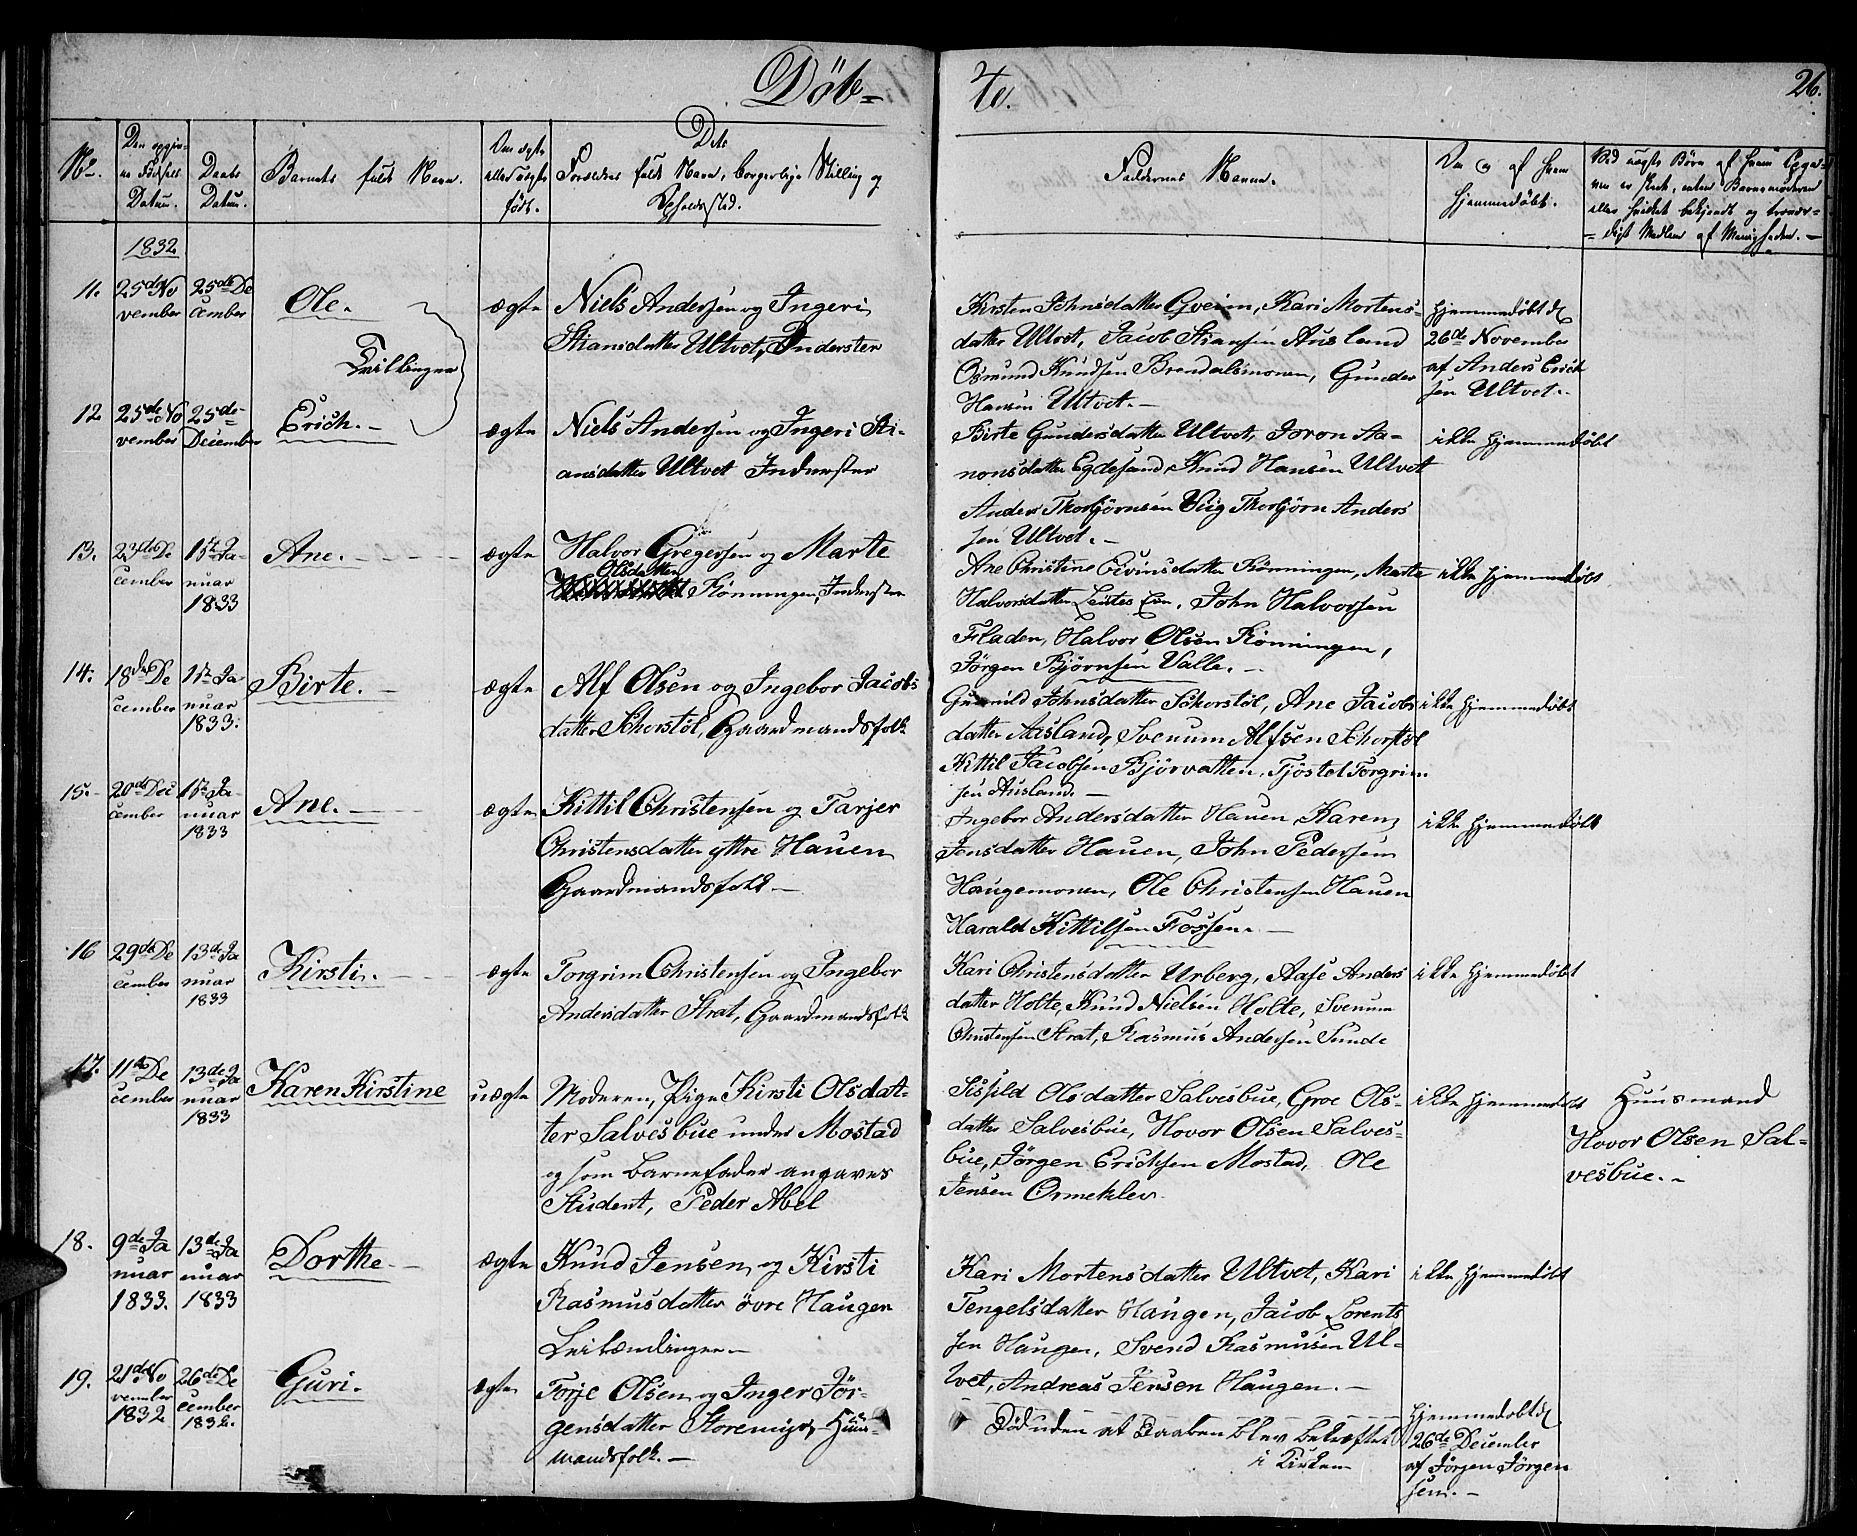 Döb-
te.
26.
No.
Den opgivne Födsels Datum.
Daabs Datum.
Barnets fulde Navn.
Om ægte eller uægte født.
Dets Forældres fulde Navn, borgerlige Stilling og Opholdssted.
Faddernes Navne.
Om og af hvem hjemmedöbt.
Ved uægte Börn af hvem Opgaven er skeet, enten Barnemoderen eller hvilket bekjendt og troværdigt Medlem af Menigheden.
1832
11.
25de November
25de December
Ole.
ægte
Niels Andersen og Ingeri
Stiansdatter Ultvet, Inderster
Kirsten Johnsdatter Gveim, Kari Mortens-
datter Ultvet, Jacob Stiansen Ausland
Osmund Knudsen Brendalsmonen, Gunder
Hansen Ultvet.
hjemmedöbt d.
26de November
af Anders Erich
sen Ultvet.
Tvillinger
12
25de November
25de December
Erich.
ægte
Niels Andersen og Ingeri Sti-
ansdatter Ultvet Inderster
Birte Gundersdatter Ultvet, Joron Aa-
nonsdatter Egdesand, Knud Hansen Ultvet
Anders Thorbjörnsen Vüg Thorbjörn Anders
sen Ultvet.
ikke hjemmedöbt
13.
23de December
1ste Januar 1833
Ane.
ægte
Halvor Gregersen og Marte
Olsdatter Rönningen, Inderster
Ane Christine Eivinsdatter Rönningen, Marte
Halvorsdatter, John Halvorsen
Fladen, Halvor Olsen Rönningen,
Jörgen Björnsen Valle.
ikke hjemmedöbt
14.
18de December
1ste Januar 1833.
Birte.
ægte
Alf Olsen og Ingebor Jacobs
datter Schorstöl, Gaardmandsfolk
Gunnild Johnsdatter Schorstöl, Ane Jacobs
datter Ausland, Svenum Alfsen Schorstöl
Kittil Jacobsen Björvatten, Tjöstel Torgrim
sen Ausland.
ikke hjemmedöbt
15.
20de December
1ste Januar 1833
Ane.
ægte
Kittil Christensen og Tarjer
Christensdatter yttre Hauen
Gaardmandsfolk.
Ingebor Andersdatter Hauen, Karen
Jensdatter Hauen, John Pedersen
Haugemonen, Ole Christensen Hauen
Harald Kittilsen Fossen.
ikke hjemmedöbt
16
29de December
13de Januar 1833
Kirsti.
ægte
Torgrim Christensen og Ingebor
Andersdatter Strat, Gaardmandsfolk
Kari Christensdatter Urberg, Aase Anders
datter Holte, Knud Nielsen Holte, Svenum
Christensen Strat, Rasmus Andersen Sunde
ikke hjemmedöbt
17.
11te December
13de Januar 1833
Karen Kirstine
uægte
Moderen, Pige Kirsti Olsdat-
ter Salvesbue under Mostad
og som Barnefader angaves
Student, Peder Abel
Sisild Olsdatter Salvesbue, Groe Ols-
datter Salvesbue, Hovor Olsen Salves-
bue, Jörgen Erichsen Mostad, Ole
Jensen Ormeklev.
ikke hjemmedöbt
Huusmand
Hovor Olsen Sal-
vesbue.
18.
9de Januar 1833.
13de Januar 1833
Dorthe
ægte
Knud Jensen og Kirsti
Rasmusdatter övre Haugen
Leilændinger
Kari Mortensdatter Ultvet, Kari
Tengelsdatter Haugen, Jacob Lorents
sen Haugen, Svend Rasmusen Ul-
tvet, Andreas Jensen Haugen.
ikke hjemmedöbt
19.
21de November 1832
26de December 1832.
Guri.
ægte
Torje Olsen og Inger Jör-
gensdatter Storemyr, Huus-
mandsfolk.
Död uden at Daaben blev bekræftet
i Kirken
hjemmedöbt d.
26de December
af Jörgen Jörgen
sen.